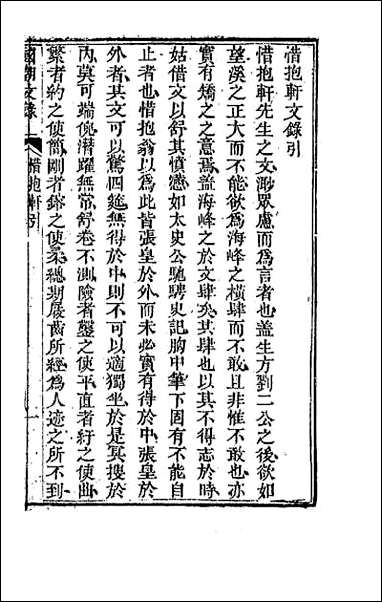 惜抱軒文錄引
惜抱軒先生之文渺眾慮而爲言者也蓋生方劉二公之後欲如
望溪之正大而不能欲爲海峰之橫肆而不敢且非惟不敢也亦
實有矯之之意焉蓋海峰之於文肆矣其肆也以其不得志於時
姑借文以舒其憤懣如太史公馳騁史記胸中筆下固有不能自
止者也惜抱翁以爲此皆張皇於外而未必實有得於中張皇於
外者其文可以驚四筵無得於中則不可以適獨坐於是冥搜於
內莫可端倪潛躍無常舒卷不測險者鑿之使平直者紆之使曲
繁者約之使簡剛者鎔之使柔總期嚴齒所經爲人迹之所不到
國朝文錄
惜抱軒引
一